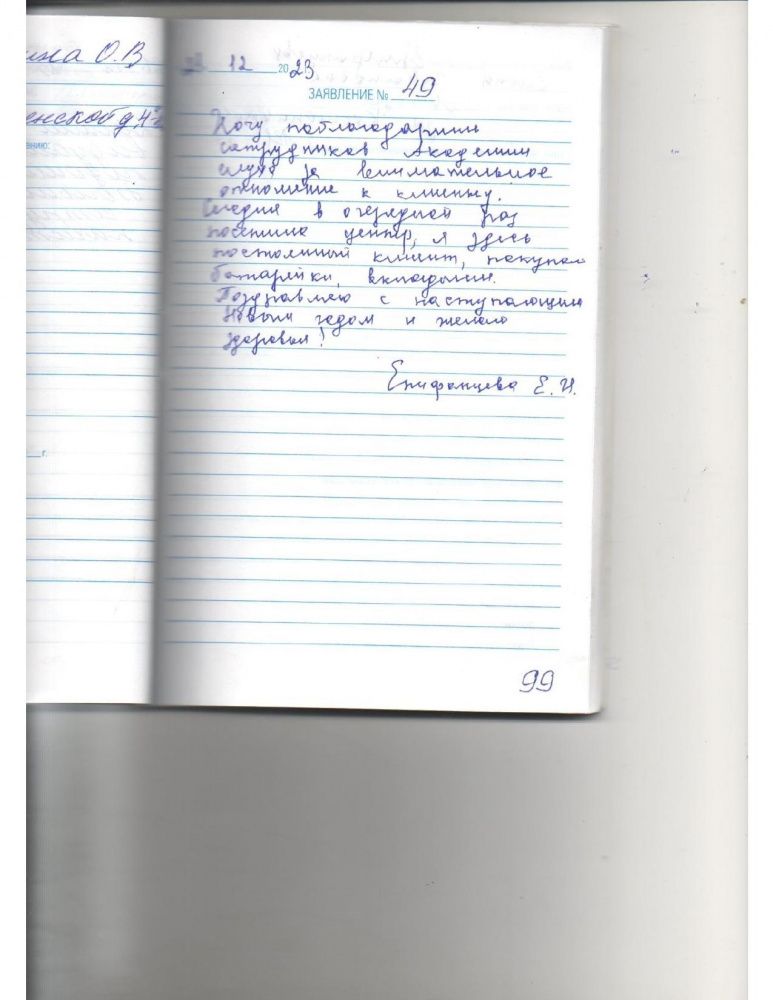 ина О.В
енской д.4
ению:
г.
12 2023
ЗАЯВЛЕНИЕ № 49
Хочу поблагодарить
сотрудников Академии
слуха за внимательное
отношение к клиенту.
Сегодня в очередной раз
посетила центр, я здесь
постоянный клиент, покупаю
батарейки, вкладыши.
Поздравляю с наступающим
Новым годом и желаю
здоровья!
Епифанцева Е.И.
99